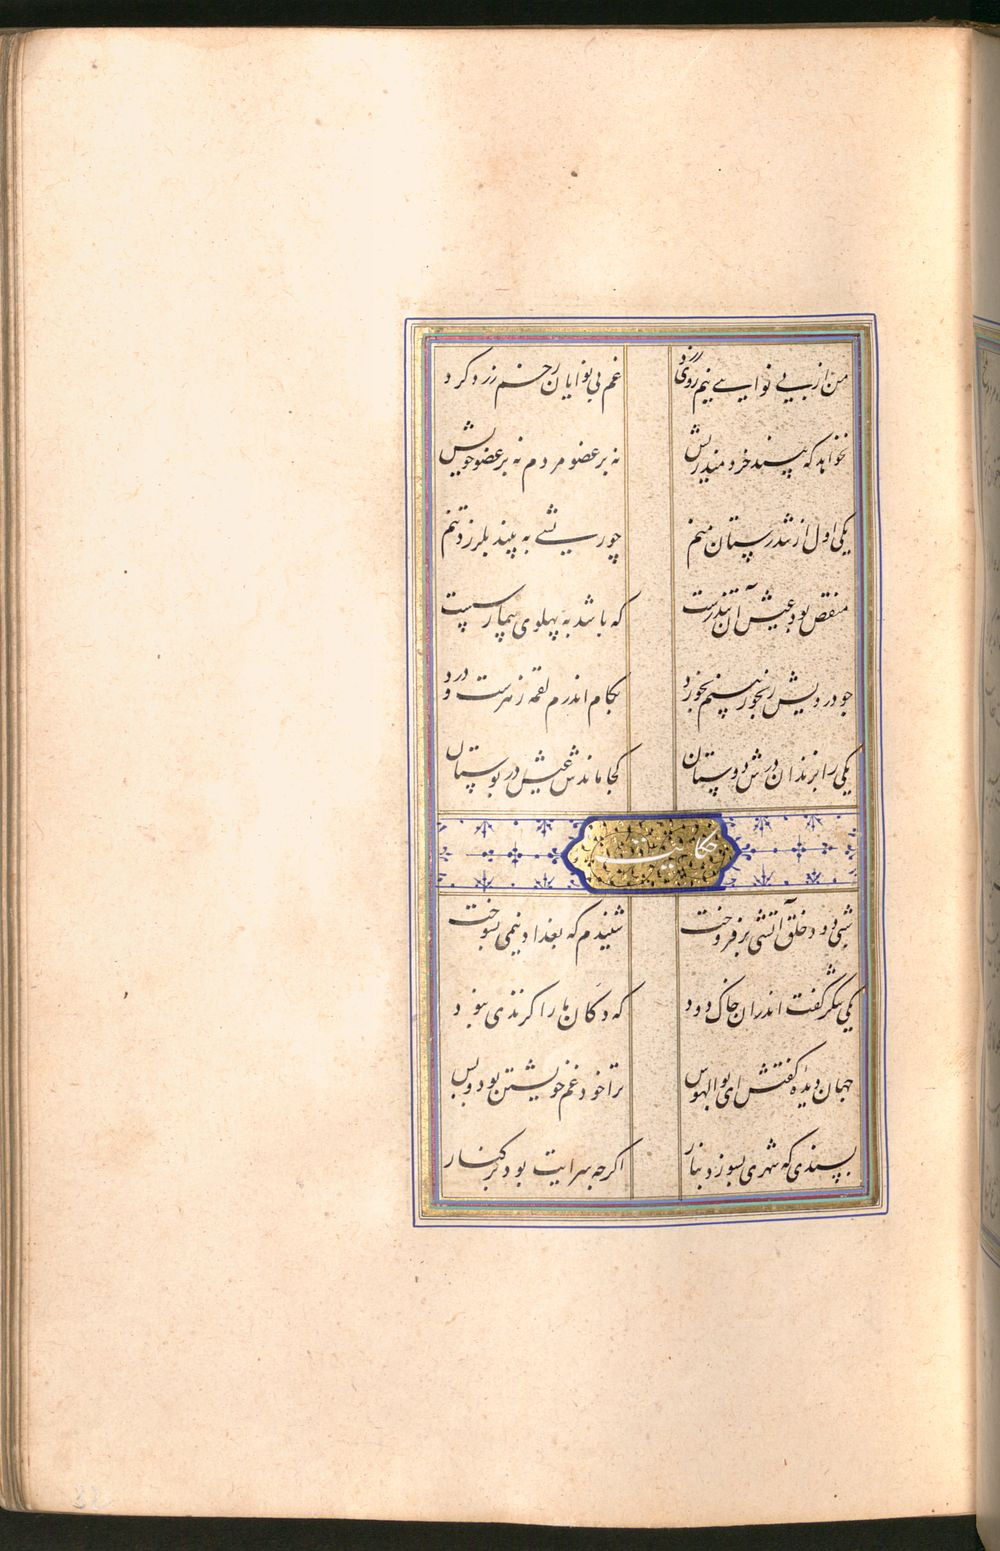 من از بی نوایی نیم روی زرد
غم بی نوایان رخم زرد کرد
نخواهد که بیند خردمند ریش
نه بر عضو مردم نه بر عضو خویش
یکی اول از تندرستان منم
چو ریشی به بینم بلرزد تنم
منغص بود عیش آن تندرست
که باشد به پهلوی بیمار سست
چو درویش رنجور بینم نخورد
بکام اندرم لقمه زهرست و درد
یکی را بزندان درش دوستان
کجا ماندش عیش در بوستان
حکایت
شبی دود خلق آتشی برفروخت
شنیدم که بغداد نیمی بسوخت
یکی شکر گفت اندران خاک دود
که دکان ما را گزندی نبود
جهان دیده گفتش ای بوالهوس
ترا خود غم خویشتن بود و بس
پسندی که شهری بسوزد بنار
اگرچه سرایت بود بر کنار
32